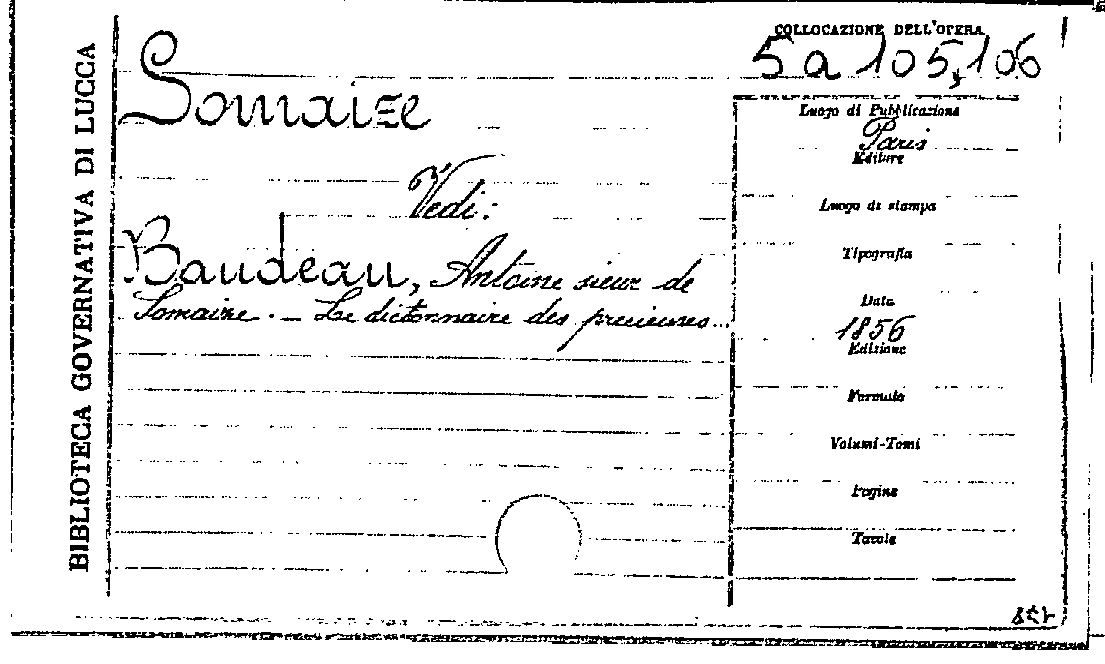 BIBLIOTECA GOVERNATIVA DI LUCCA
COLLOCAZIONE DELL'OPERA
5 a 105,106
Somaize
Vedi:
Baudeau, Antoine sieur de
Somaize. — Le dictonnaire des precieuses...
Luogo di Pubblicazione
Paris
Editore
Luogo di stampa
Tipografia
Data
1856
Edizione
Formato
Volumi-Tomi
Pagine
Tavole